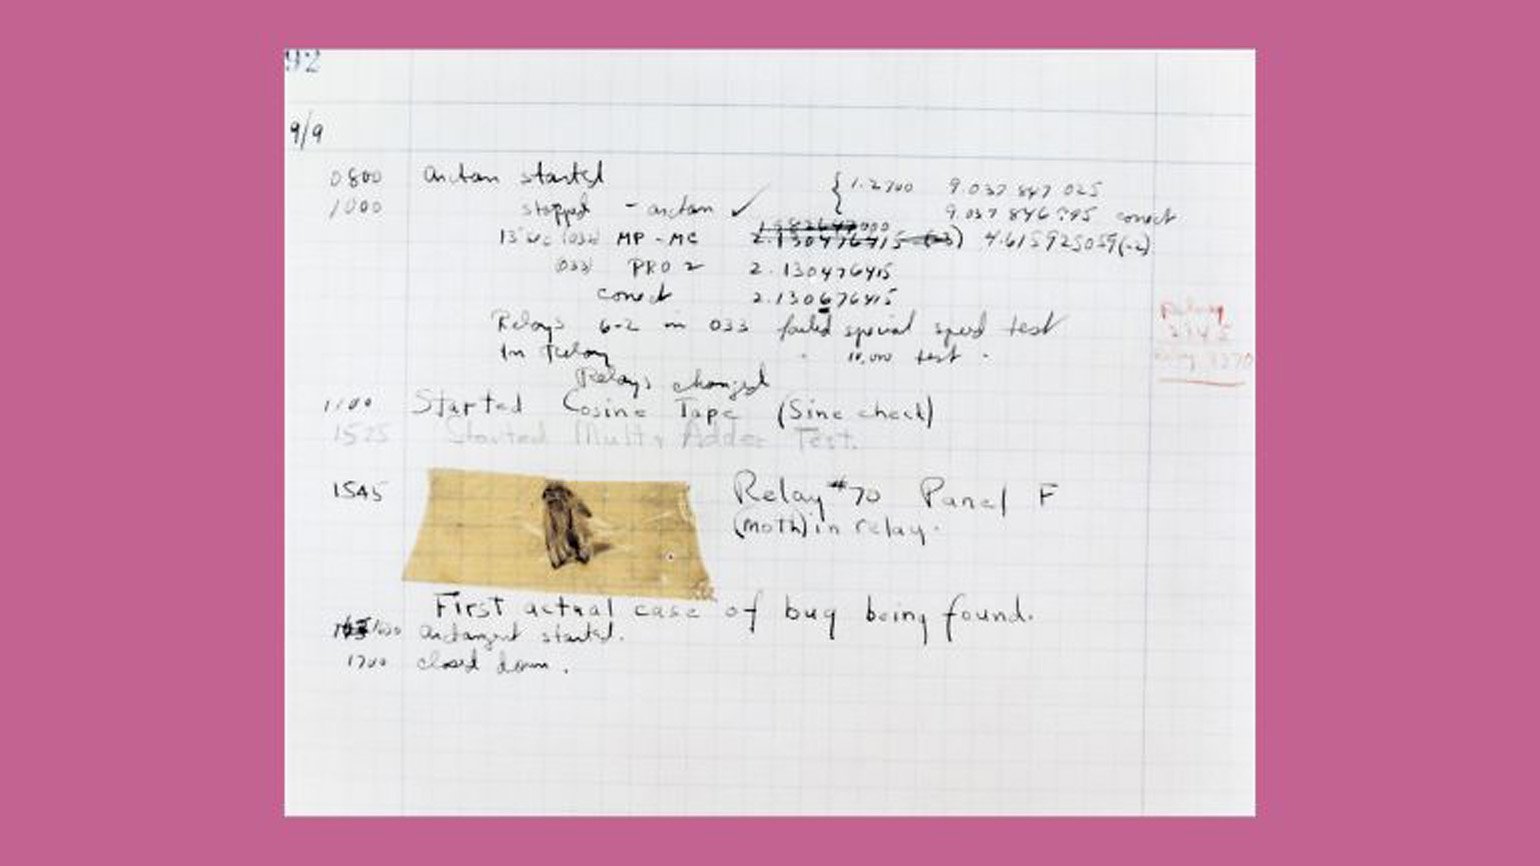 92
9/9
0800 arctan started { 1.2700 9.037 847 025
1000 stopped - arctan ✓ 9.037 846 795 correct
13"uc (032) MP - MC 2.130476415 (-3) 4.615925059(-2)
(033) PRO 2 2.130476415
correct 2.130676415
Relays 6-2 in 033 failed special speed test
In Relay 10,000 test.
Relays changed
1100 Started Cosine Tape (Sine check)
1525 Started Mult+ Adder Test.
1545 Relay #70 Panel F
(moth) in relay.
First actual case of bug being found.
1630 arctangent started.
1700 closed down.
Relay
2145
Relay 3370